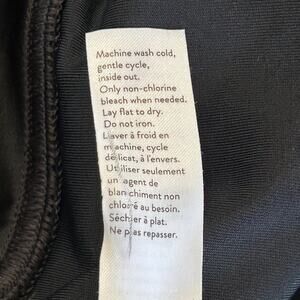 Machine wash cold,
gentle cycle,
inside out.
Only non-chlorine
bleach when needed.
Lay flat to dry.
Do not iron.
Laver à froid en
machine, cycle
délicat, à l'envers.
Utiliser seulement
un agent de
blanchiment non
chloré au besoin.
Sécher à plat.
Ne pas repasser.